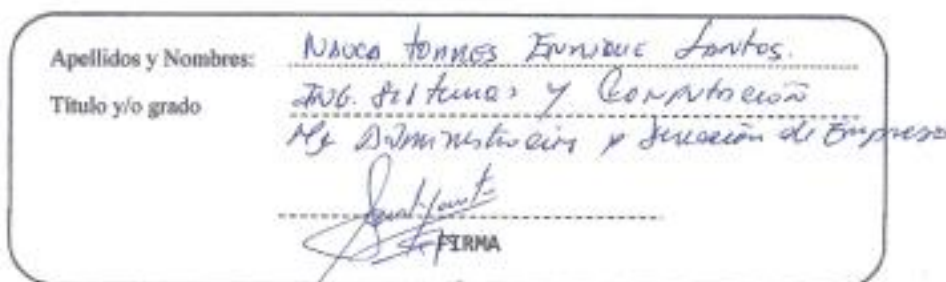 Apellidos y Nombres: Nauca Torres Enrique Santos.
Título y/o grado Ing. Sistemas y Computación
Mg Administración y Dirección de Empresa
FIRMA